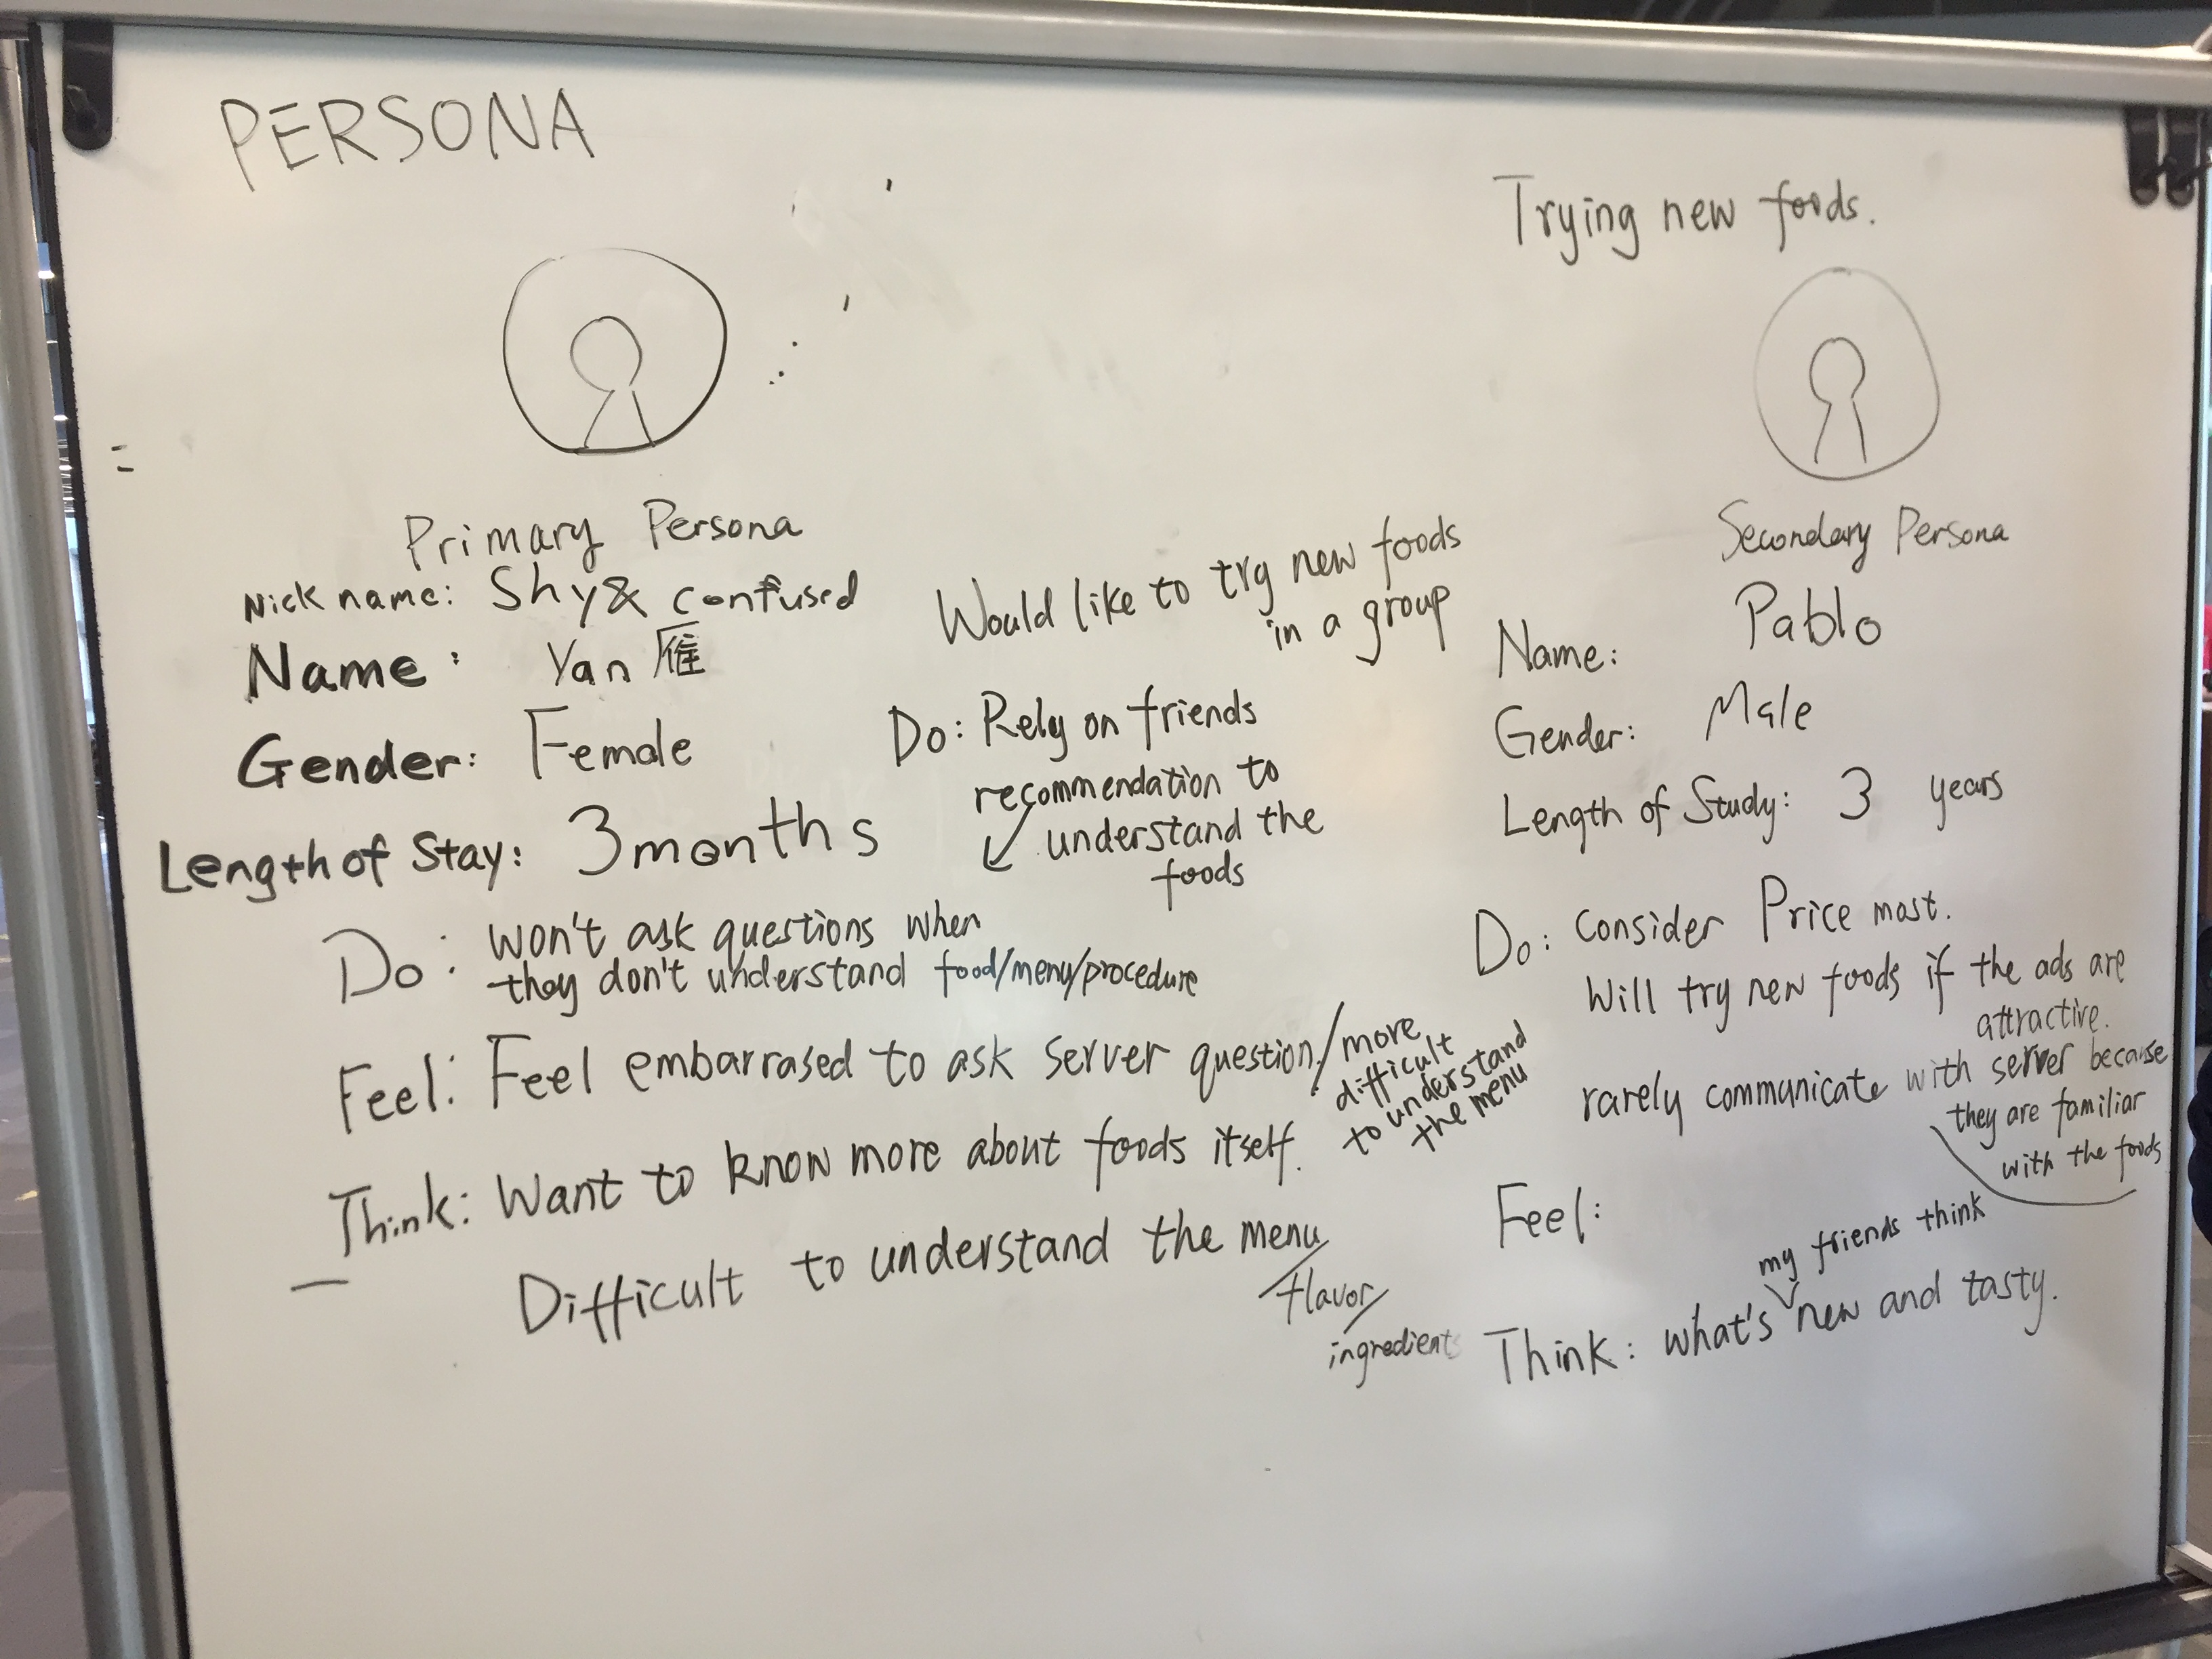 PERSONA
Trying new foods.
Primary Persona
Nick name: Shy & confused
Name: Yan 雁
Gender: Female
Length of Stay: 3 months
Would like to try new foods
in a group
Do: Rely on friends
recommendation to
understand the
foods
Do: won't ask questions when
they don't understand food/menu/procedure
Feel: Feel embarrased to ask server question/more
difficult
to understand
the menu
Think: Want to know more about foods itself.
Difficult to understand the menu/
flavor/
ingredients
Secondary Persona
Name: Pablo
Gender: Male
Length of Study: 3 years
Do: Consider Price most.
Will try new foods if the ads are
attractive.
rarely communicate with server because
they are familiar
with the foods
Feel:
my friends think
Think: what's new and tasty.